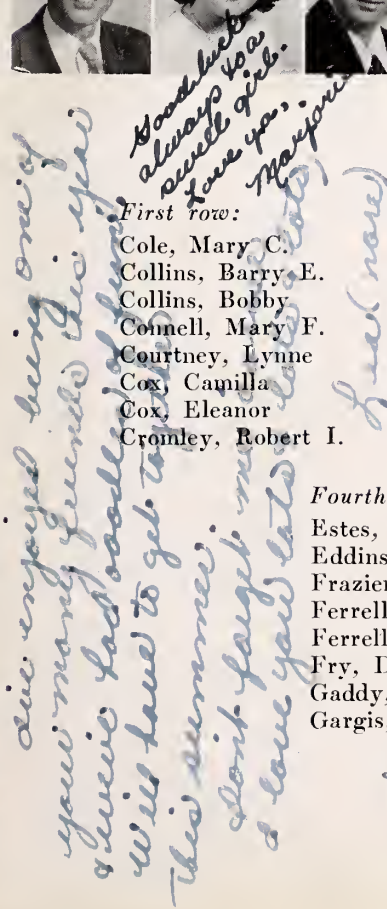 Good luck
always to a
swell girl.
Love ya,
Marjorie
First row:
Cole, Mary C.
Collins, Barry E.
Collins, Bobby
Connell, Mary F.
Courtney, Lynne
Cox, Camilla
Cox, Eleanor
Cromley, Robert I.
Fourth
Estes,
Eddins
Frazier
Ferrell
Ferrell
Fry, D
Gaddy,
Gargis,
ave enjoyed being one of
your many friends this year
& we've had oodles of fun
Will have to get together
this summer.
Don't forget me
I love you lots